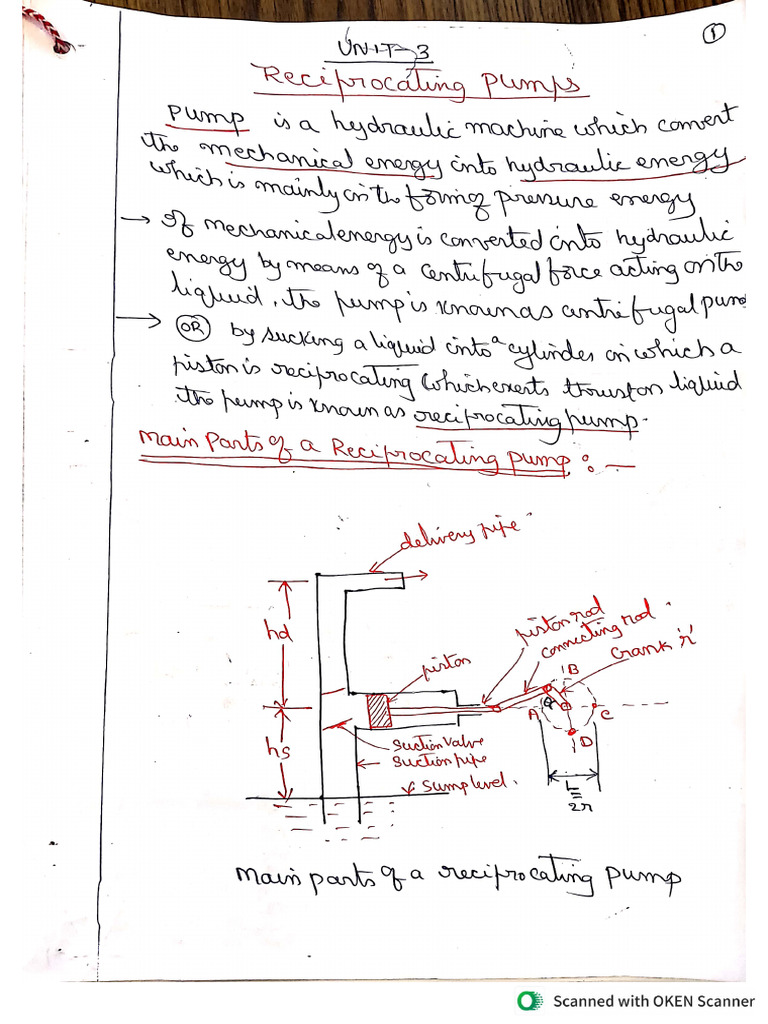 1
UNIT-3
Reciprocating Pumps
Pump is a hydraulic machine which convert
the mechanical energy into hydraulic energy
which is mainly in the form of pressure energy
→ If mechanical energy is converted into hydraulic
energy by means of a centrifugal force acting on the
liquid, the pump is known as centrifugal pump
→ (OR) by sucking a liquid into a cylinder in which a
piston is reciprocating which exerts thrust on liquid
the pump is known as reciprocating pump.
Main Parts of a Reciprocating pump :-
delivery pipe
hd
piston rod
connecting rod
crank 'r'
piston
B
A
C
D
hs
suction valve
suction pipe
sump level.
L=
2r
Main parts of a reciprocating pump
Scanned with OKEN Scanner